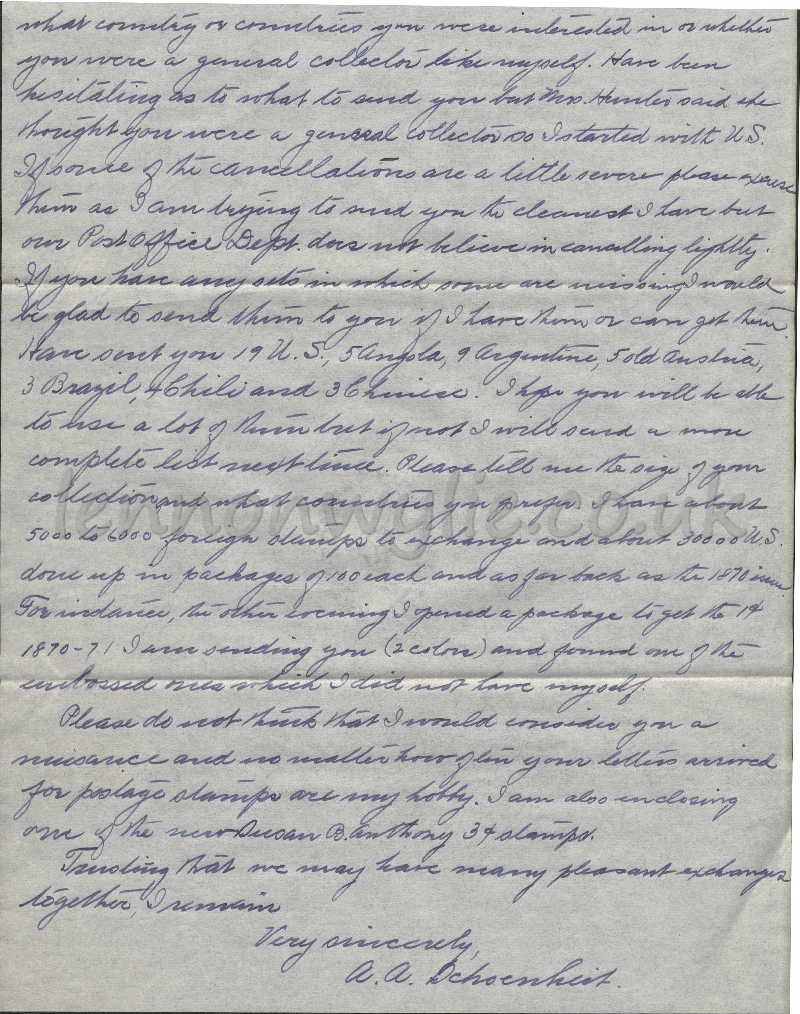 what country or countries you were interested in or whether
you were a general collector like myself. Have been
hesitating as to what to send you but Mrs. Hunter said she
thought you were a general collector so I started with U.S.
If some of the cancellations are a little severe please excuse
them as I am trying to send you the cleanest I have but
our Post Office Dept. does not believe in cancelling lightly.
If you have any sets in which some are missing I would
be glad to send them to you if I have them or can get them.
Have sent you 19 U.S., 5 Angola, 9 Argentine, 5 old Austria,
3 Brazil, 4 Chili and 3 Chinese. I hope you will be able
to use a lot of them but if not I will send a more
complete list next time. Please tell me the size of your
collection and what countries you prefer. I have about
5000 to 6000 foreign stamps to exchange and about 30000 U.S.
done up in packages of 100 each and as far back as the 1870 issue.
For instance, the other evening I opened a package to get the 1¢
1870-71 I am sending you (2 colors) and found one of the
embossed ones which I did not have myself.
Please do not think that I would consider you a
nuisance and no matter how often your letters arrived
for postage stamps are my hobby. I am also enclosing
one of the new Susan B. Anthony 3¢ stamps.
Trusting that we may have many pleasant exchanges
together, I remain
Very sincerely,
A. A. Schoenheit.
lennonwylie.co.uk